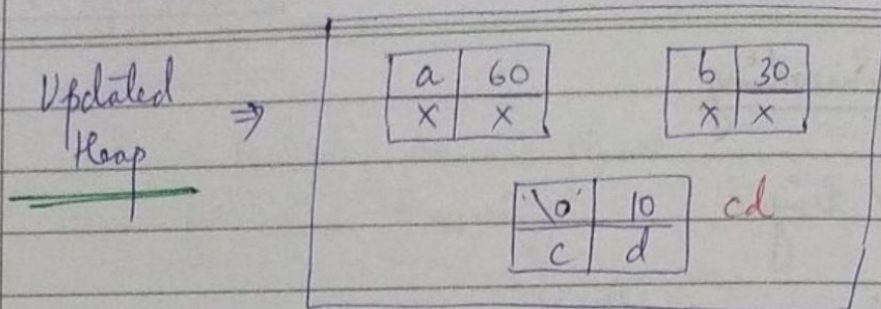 Updated
Heap ⇒
a 60
x x
b 30
x x
'\0' 10 cd
c d